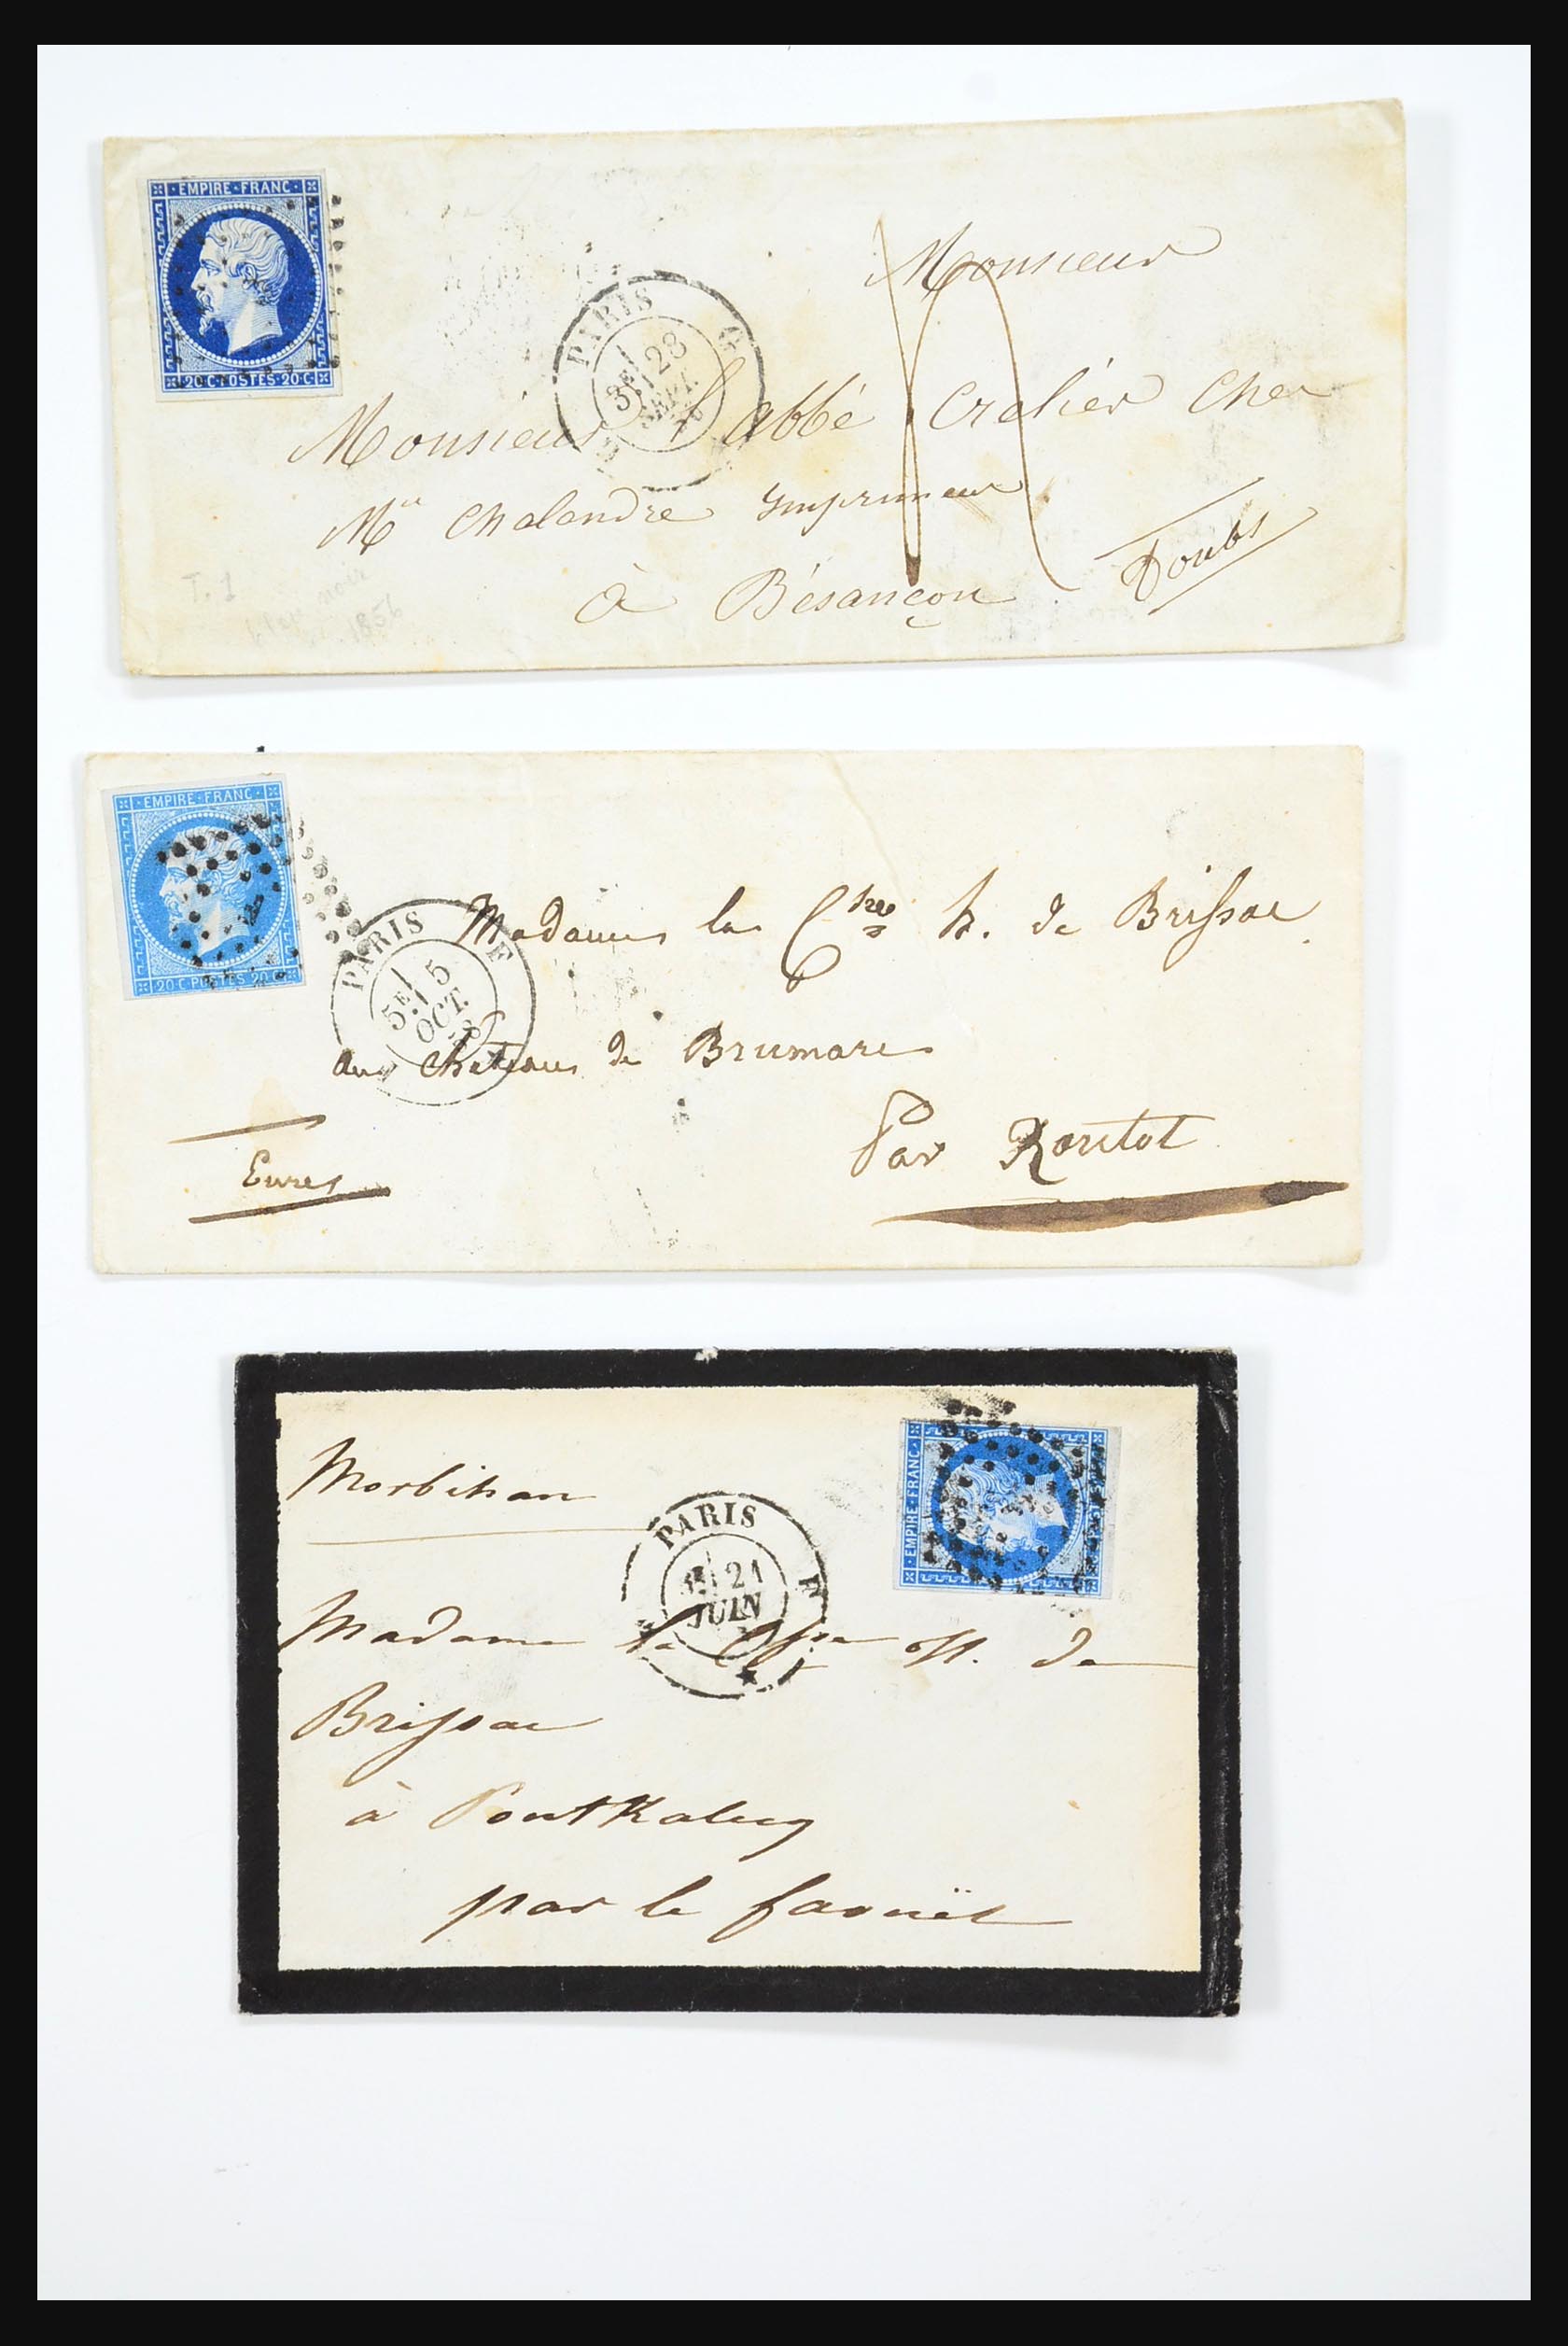 EMPIRE·FRANC·
20·C·POSTES·20·C
PARIS
3E
28
SEPT.
Monsieur
Monsieur l'abbé Cralier Chez
Mr Chalandre Imprimeur
à Bésançon
Doubs
T. 1
noir
1856
EMPIRE·FRANC·
20·C·POSTES·20·C
PARIS
E
5E
5
OCT.
Madame la Ctesse h. de Brissac
au château de Brumare
Par Routot
Eure
EMPIRE·FRANC·
Morbihan
PARIS
21
JUIN
Madame la Ctesse H. de
Brissac
à Pontkalleg
par le faouët